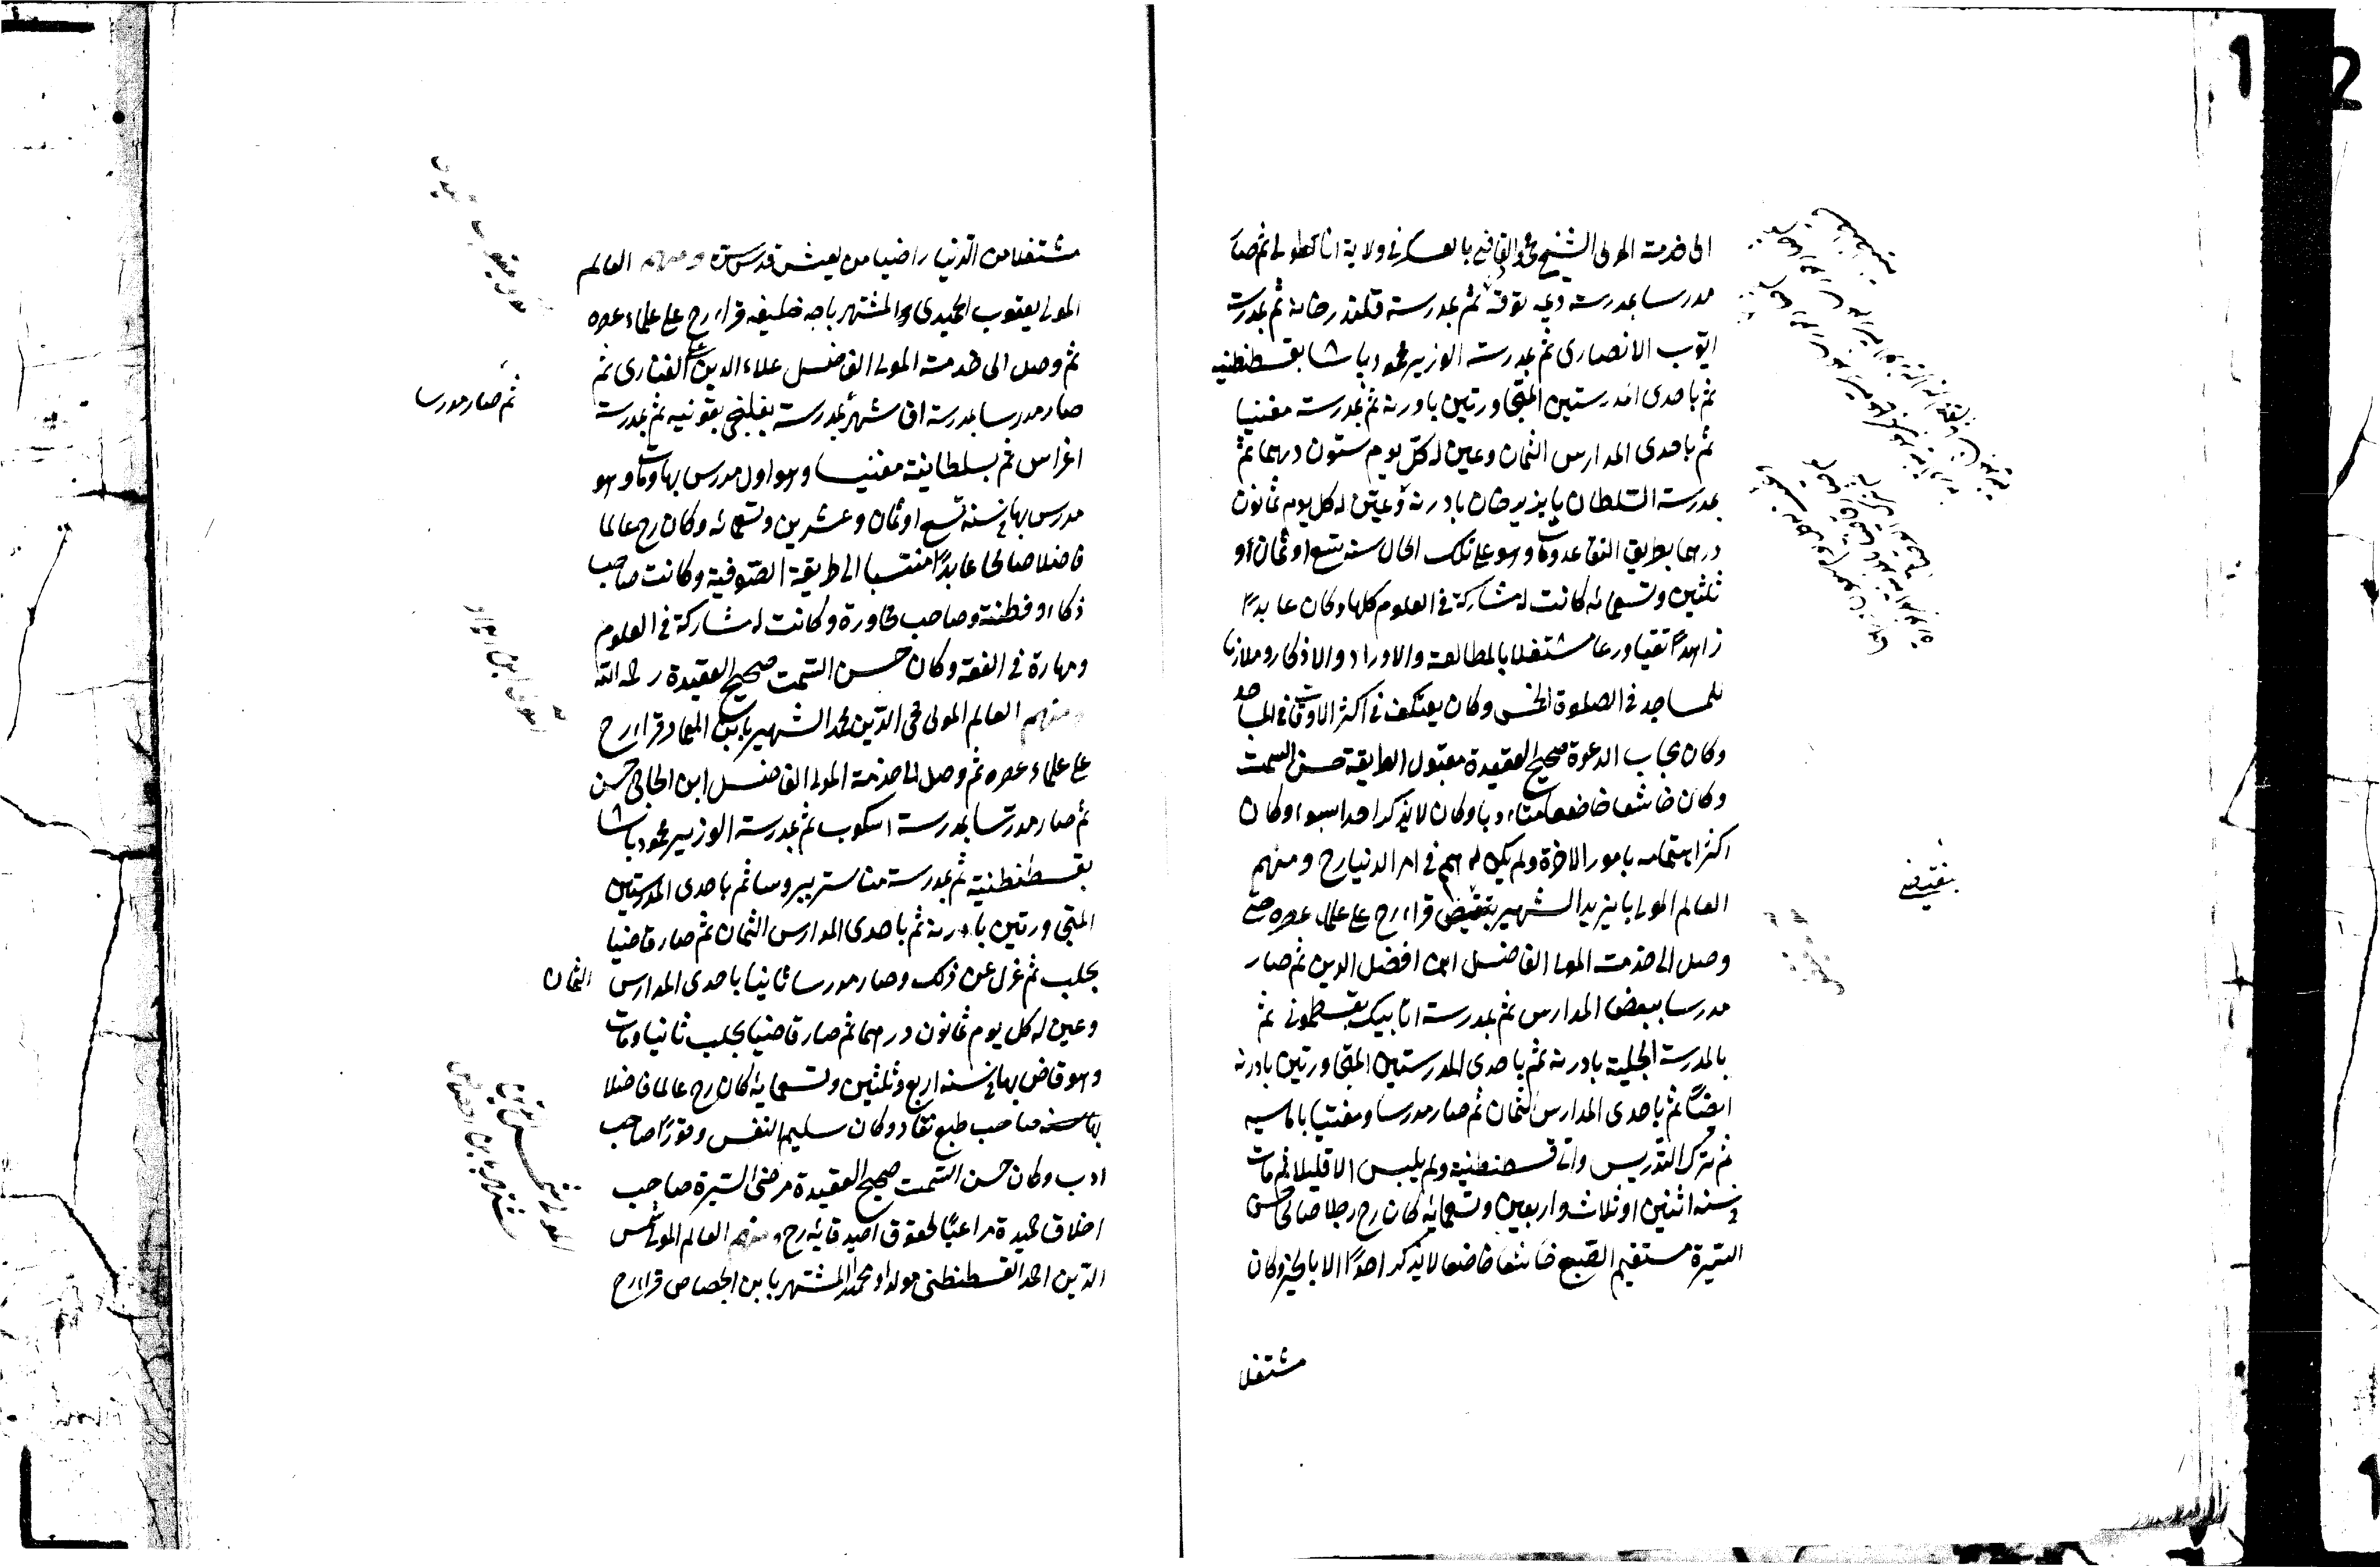 الى خدمة المولى الشيخ محمود القاضى بالعسكر فى ولاية اناطولى ثم صار
مدرسا بمدرسة ديمه توقه ثم بمدرسة قلندرخانه ثم بمدرسة
ايوب الانصارى ثم بمدرسة الوزير محمود باشا بقسطنطنيه
ثم باحدى المدرستين المتجاورتين بادرنه ثم بمدرسة مغنيسا
ثم باحدى المدارس الثمان وعين له كل يوم ستون درهما ثم
بمدرسة السلطان بايزيد خان بادرنه وعين له كل يوم ثمانون
درهما بطريق التقاعد ومات وهو على تلك الحال سنه تسع او ثمان او
ثلثين وتسعمائه كانت له مشاركة فى العلوم كلها وكان عابدًا
زاهدًا تقيا ورعا مشتغلا بالمطالعة والاوراد والاذكار وملازما
للمساجد فى الصلوة الخمس وكان يعتكف فى اكثر الاوقات فى المساجد
وكان مجاب الدعوة صحيح العقيدة مقبول الطريقة حسن السمت
وكان خاشعا خاضعا متادبا وكان لا يذكر احدا بسوء وكان
اكثر اهتمامه بامور الاخرة ولم يكن له هم فى امر الدنيا رح ومنهم
العالم المولى بايزيد الشهير بنقيضى قراء رح على علماء عصره حتى
وصل الى خدمة المولى الفاضل ابن افضل الدين ثم صار
مدرسا ببعض المدارس ثم بمدرسة اتابيك بقسطمونى ثم
بالمدرسة الحلبية بادرنه ثم باحدى المدرستين المتجاورتين بادرنه
ايضًا ثم باحدى المدارس الثمان ثم صار مدرسا ومفتيا باماسيه
ثم ترك التدريس واتى قسطنطنية ولم يلبس الا قليلا ثم مات
فى سنه اثنين او ثلاث واربعين وتسعمائه كان رح رجلا صالحا حسن
السيرة مستقيم الطبع خاشعا خاضعا لا يذكر احدًا الا بالخير وكان
مشتغلا
نقيضى
مشتغلا من الدنيا راضيا من يعيش قدس سره ومنهم العالم
المولى يعقوب الحميدى المشتهر باجه خليفه قراء رح على علماء عصره
ثم وصل الى خدمة المولى الفاضل علاء الدين على الفنارى ثم
صار مدرسا بمدرسة اق شهر بمدرسة بقونيه ثم بمدرسة
ثم صار مدرسا
اغراس ثم بسلطانية مغنيسا وهو اول مدرس بها ومات وهو
مدرس بها فى سنه تسع او ثمان وعشرين وتسعمائه وكان رح عالما
فاضلا صالحا عابدًا منتسبا الى طريقة الصوفية وكانت صاحب
ذكاء وفطنة وصاحب محاورة وكانت له مشاركة فى العلوم
ومهارة فى الفقه وكان حسن السمت صحيح العقيدة رحمه الله
ومنهم العالم المولى محى الدين محمد الشهير بابن المعمار قراء رح
على علماء عصره ثم وصل الى خدمة المولى الفاضل ابن الحاجى حسن
ثم صار مدرسا بمدرسة اسكوب ثم بمدرسة الوزير محمود باشا
بقسطنطنية ثم بمدرسة مناستر ببروسا ثم باحدى المدرستين
المتجاورتين بادرنه ثم باحدى المدارس الثمان ثم صار قاضيا
بحلب ثم عزل عن ذلك وصار مدرسا ثانيا باحدى المدارس الثمان
وعين له كل يوم ثمانون درهما ثم صار قاضيا بحلب ثانيا ومات
وهو قاض بها فى سنه اربع وثلثين وتسعمايه كان رح عالما فاضلا
صاحب طبع نقاد وكان سليم النفس وقورًا صاحب
ادب وكان حسن السمت صحيح العقيدة مرضى السيرة صاحب
اخلاق حميدة مراعيًا لحقوق اصدقائه رح ومنهم العالم المولى شمس
الدين احمد القسطنطنى مولدا ومحتدا المشتهر بابن الجصاص قراء رح